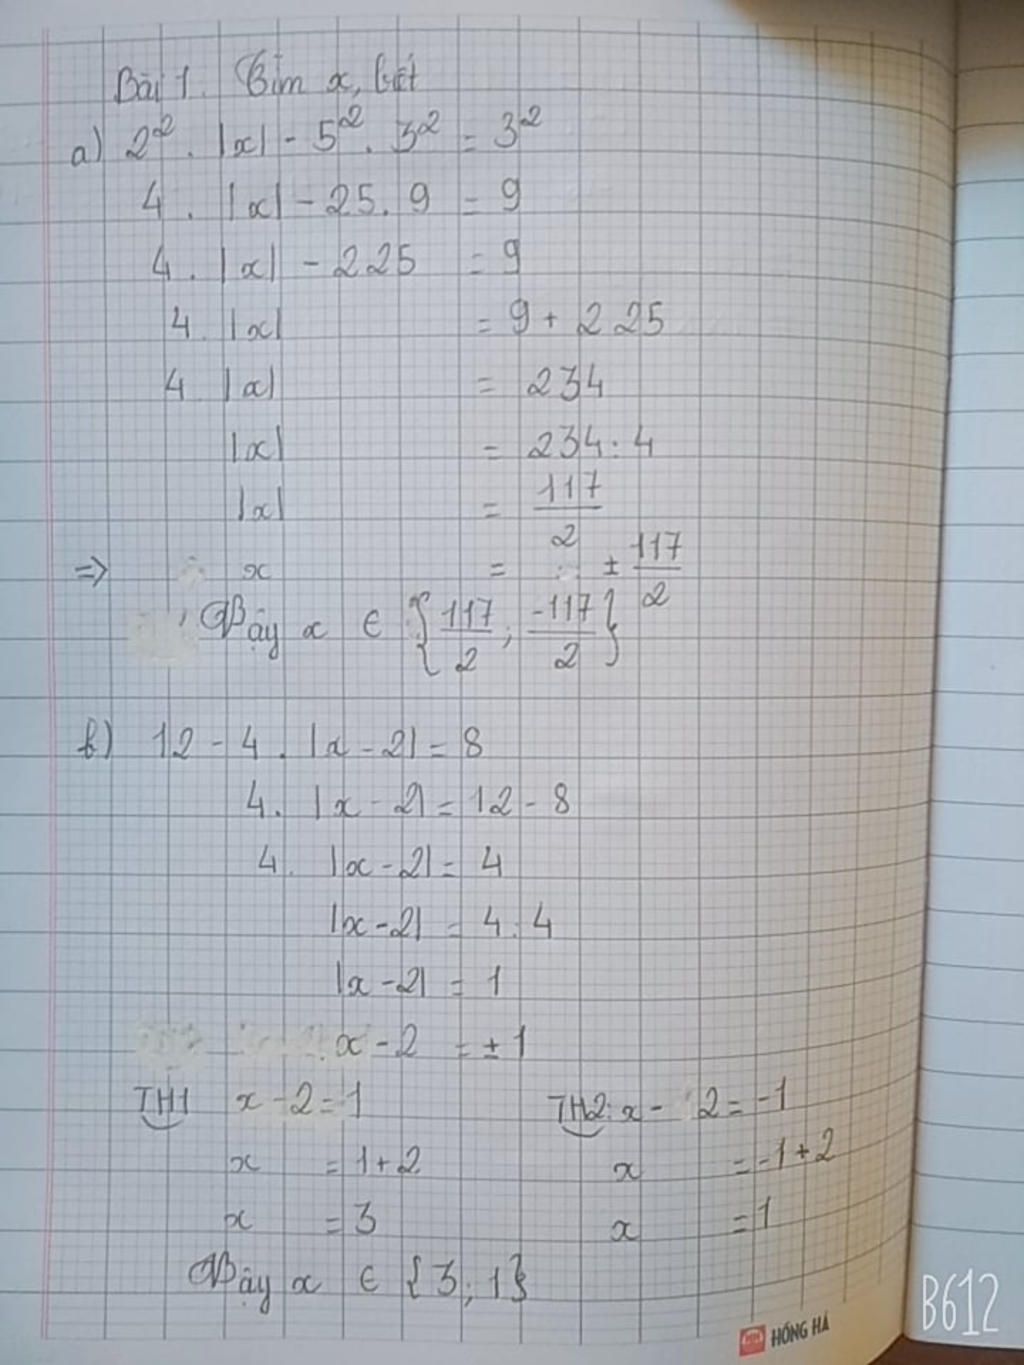 Bài 1. Tìm x, biết
a) 2². |x| - 5². 3² = 3²
4. |x| - 25. 9 = 9
4. |x| - 225 = 9
4. |x| = 9 + 225
4 |x| = 234
|x| = 234 : 4
|x| = 117/2
=> x = ± 117/2
Vậy x ∈ {117/2; -117/2}
b) 12 - 4. |x - 2| = 8
4. |x - 2| = 12 - 8
4. |x - 2| = 4
|x - 2| = 4 : 4
|x - 2| = 1
x - 2 = ± 1
TH1 x - 2 = 1 TH2: x - 2 = -1
x = 1 + 2 x = -1 + 2
x = 3 x = 1
Vậy x ∈ {3; 1}
HỒNG HÀ
B612